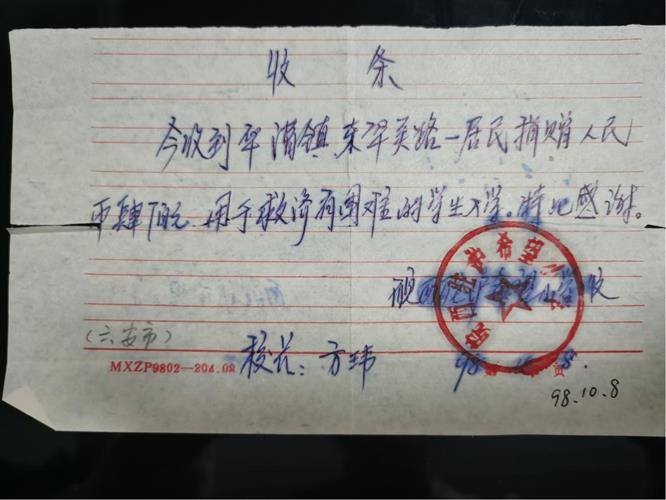 收条
今收到平浦镇东平关路一居民捐赠人民
币肆百元 用于救济有困难的学生入学。特此感谢。
希望小学
校长：方玮 98. 8.
(六安市)
MXZP9802—204.02 第 页
98.10.8